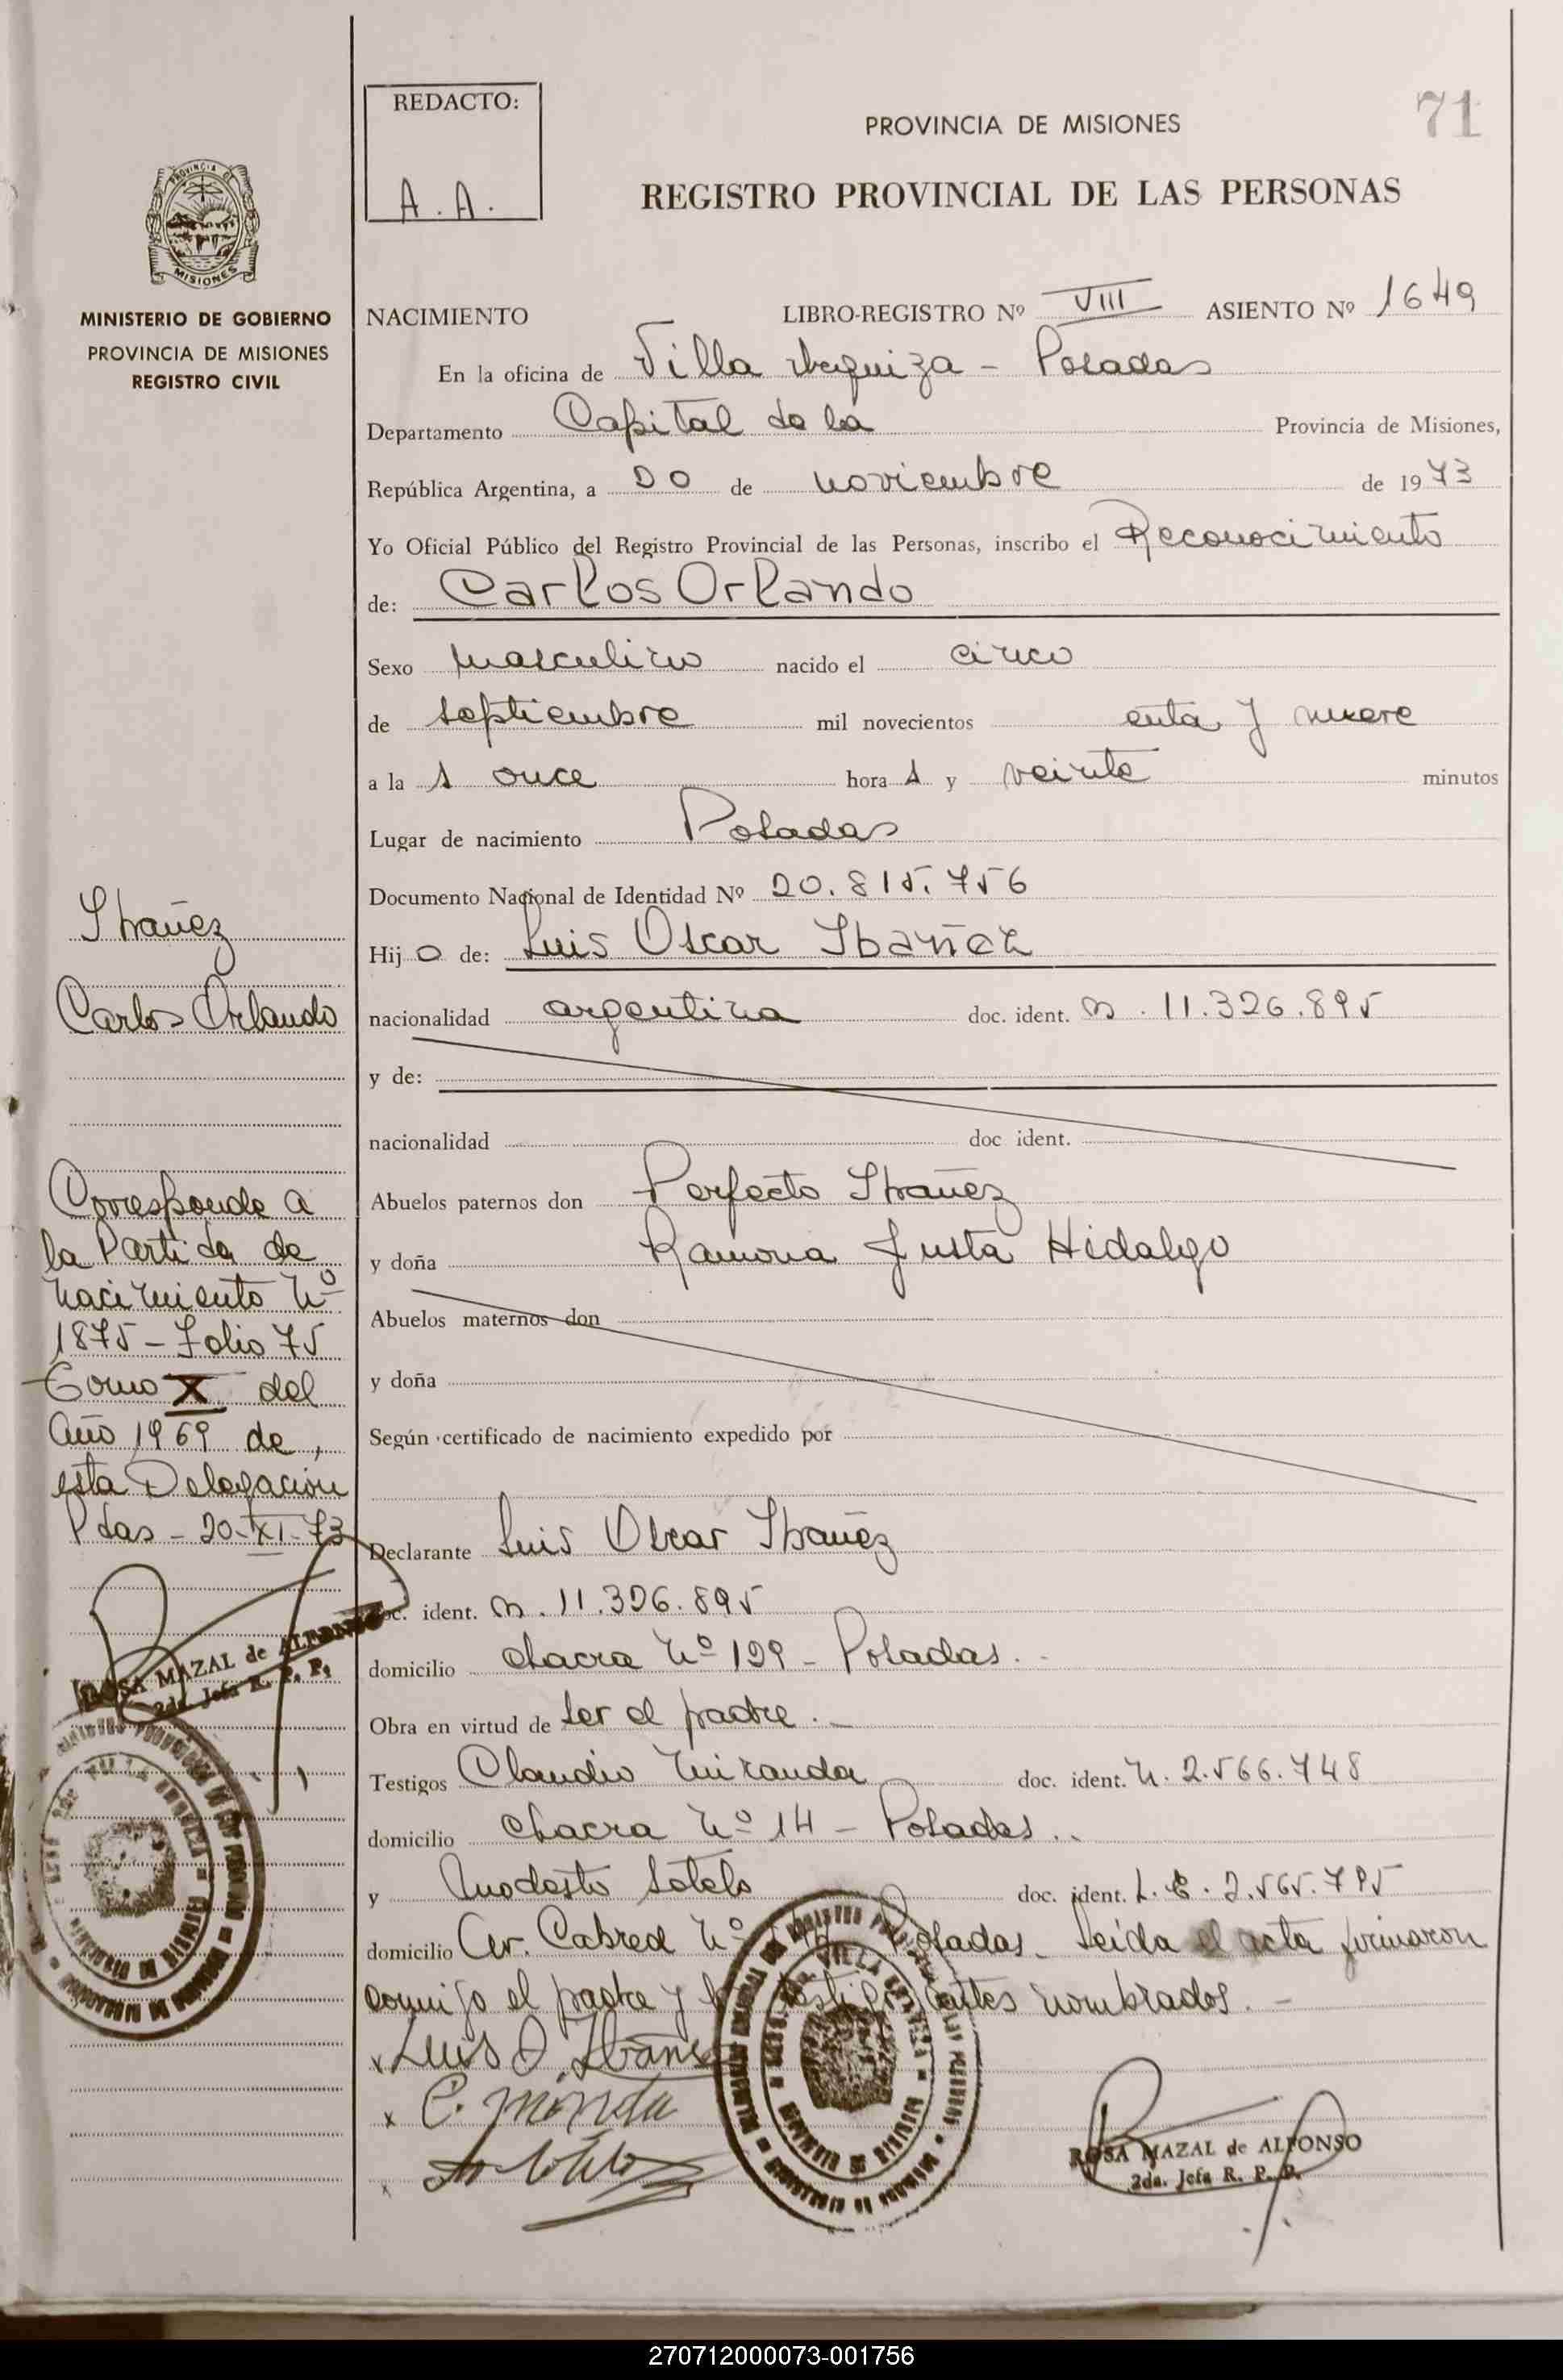 71
REDACTO:
A. A.
PROVINCIA DE MISIONES
REGISTRO PROVINCIAL DE LAS PERSONAS
PROVINCIA DE
MISIONES
MINISTERIO DE GOBIERNO
PROVINCIA DE MISIONES
REGISTRO CIVIL
NACIMIENTO LIBRO-REGISTRO Nº VIII ASIENTO Nº 1649
En la oficina de Villa Urquiza - Posadas
Departamento Capital de la Provincia de Misiones,
República Argentina, a 20 de noviembre de 1973
Yo Oficial Público del Registro Provincial de las Personas, inscribo el Reconocimiento
de: Carlos Orlando
Sexo masculino nacido el cinco
de septiembre mil novecientos enta y nueve
a la s once hora s y veinte minutos
Lugar de nacimiento Posadas
Documento Nacional de Identidad Nº 20.815.756
Hij o de: Luis Oscar Ibañez
nacionalidad argentina doc. ident. M. 11.326.895
y de:
nacionalidad doc ident.
Abuelos paternos don Perfecto Ibañez
y doña Ramona Justa Hidalgo
Abuelos maternos don
y doña
Según certificado de nacimiento expedido por
Declarante Luis Oscar Ibañez
doc. ident. M. 11.326.895
domicilio chacra Nº 129 - Posadas.-
Obra en virtud de ser el padre.-
Testigos Claudio Miranda doc. ident. M. 2.566.748
domicilio chacra Nº 14 - Posadas..
y Modesto Sotelo doc. ident. L. E. 2.565.795
domicilio Av. Cabred Nº Posadas - Leida el acta firmaron
conmigo el padre y los testigos antes nombrados.-
x Luis O. Ibañez
x C. Miranda
x
ROSA MAZAL de ALFONSO
2da. Jefa R. P. P.
Ibañez
Carlos Orlando
Corresponde a
la Partida de
nacimiento Nº
1875 - Folio 75
Tomo X del
Año 1969 de
esta Delegacion
Pdas - 20-XI-73
ROSA MAZAL de ALFONSO
2da. Jefa R. P. P.
270712000073-001756